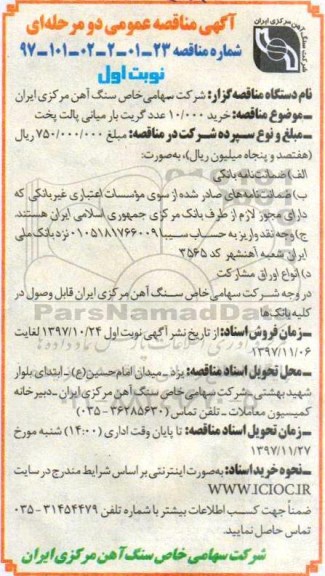 آگهی مناقصه عمومی دو مرحله‌ای
شماره مناقصه ۲۳-۰۱-۲-۰۲-۱۰۱-۹۷
نوبت اول
شرکت سنگ آهن مرکزی ایران
نام دستگاه مناقصه‌گزار: شرکت سهامی خاص سنگ آهن مرکزی ایران
ـ موضوع مناقصه: خرید ۱۰/۰۰۰ عدد گریت بار میانی پالت پخت
ـ مبلغ و نوع سپرده شرکت در مناقصه: مبلغ ۷۵۰/۰۰۰/۰۰۰ ریال
(هفتصد و پنجاه میلیون ریال)، به‌صورت:
الف) ضمانت‌نامه بانکی
ب) ضمانت‌نامه‌های صادر شده از سوی مؤسسات اعتباری غیربانکی که
دارای مجوز لازم از طرف بانک مرکزی جمهوری اسلامی ایران هستند.
ج) وجه نقد واریز به حساب سیبا ۰۱۰۵۱۸۱۷۶۶۰۰۹ نزد بانک ملی
ایران شعبه آهنشهر کد ۳۵۶۵
د) انواع اوراق مشارکت
در وجه شرکت سهامی خاص سنگ آهن مرکزی ایران قابل وصول در
کلیه بانک‌ها
ـ زمان فروش اسناد: از تاریخ نشر آگهی نوبت اول ۱۳۹۷/۱۰/۲۴ لغایت
۱۳۹۷/۱۱/۰۶
ـ محل تحویل اسناد مناقصه: یزد ـ میدان امام حسین(ع) ـ ابتدای بلوار
شهید بهشتی ـ شرکت سهامی خاص سنگ آهن مرکزی ایران ـ دبیرخانه
کمیسیون معاملات ـ تلفن تماس (۳۶۲۸۵۶۳۰-۰۳۵)
ـ زمان تحویل اسناد مناقصه: تا پایان وقت اداری (۱۴:۰۰) شنبه مورخ
۱۳۹۷/۱۱/۲۷
ـ نحوه خرید اسناد: به‌صورت اینترنتی بر اساس شرایط مندرج در سایت
WWW.ICIOC.IR
ضمناً جهت کسب اطلاعات بیشتر با شماره تلفن ۳۱۴۵۴۴۷۹-۰۳۵
تماس حاصل نمایید.
شرکت سهامی خاص سنگ آهن مرکزی ایران
ParsNamadData